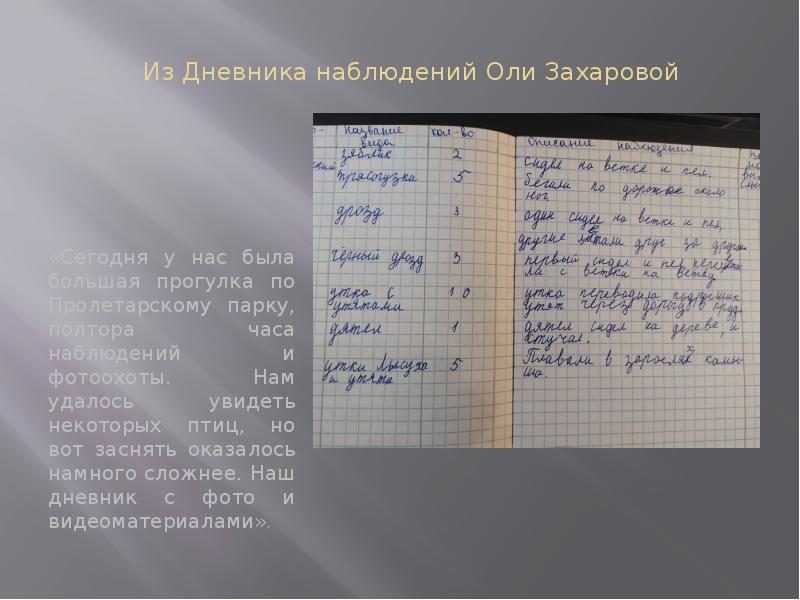 Из Дневника наблюдений Оли Захаровой
«Сегодня у нас была
большая прогулка по
Пролетарскому парку,
полтора часа
наблюдений и
фотоохоты. Нам
удалось увидеть
некоторых птиц, но
вот заснять оказалось
намного сложнее. Наш
дневник с фото и
видеоматериалами».
Название кол-во
вида
зяблик 2
трясогузка 5
дрозд 3
чёрный дрозд 3
утка с 10
утятами
дятел 1
утки лысуха 5
и утята
Описание наблюдения
сидел на ветке и пел.
бегали по дорожке около
ног.
один сидел на ветке и пел,
другие летали друг за другом
первый сидел и пел
ли с ветки на ветку.
утка переводила подросших
утят через дорогу в пруд.
дятел сидел на дереве, и
стучал.
Плавали в зарослях камы-
ша